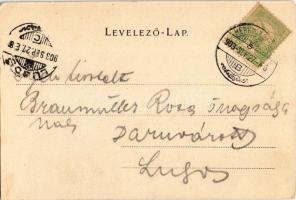 LEVELEZŐ-LAP.
LUGOS
903 SEP. 27. E 8
903 SEP. 27.
Braunmüller Rosa önagysága
nak
Daruváros
Lugos